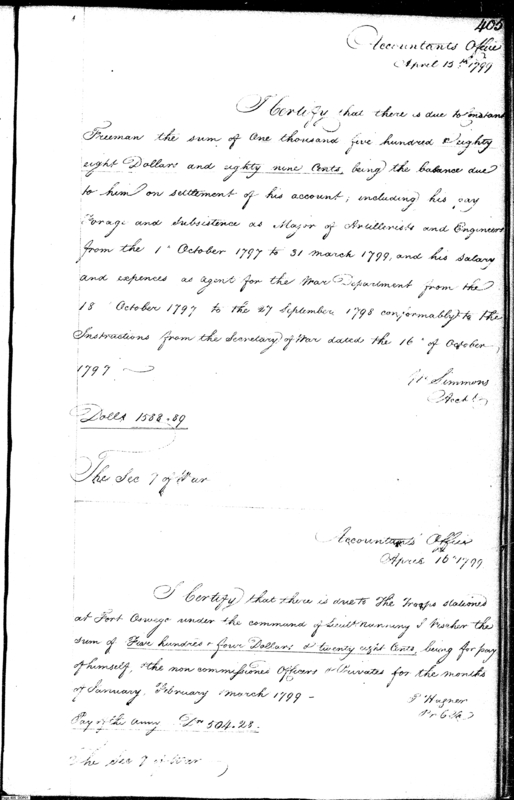 405
Accountants Office
April 15th 1799
I Certify that there is due to Constant
Freeman the sum of One thousand five hundred & eighty
eight Dollars and eighty nine Cents, being the balance due
to him on settlement of his account; including his pay
Forage and Subsistence as Major of Artillerists and Engineers
from the 1st October 1797 to 31 march 1799, and his salary
and expences as agent for the War Department from the
18 October 1797 to the 27 September 1798 conformably to the
Instructions from the Secretary of War dated the 16th of October
1797
Wm Simmons
Acct
Dolls 1588.89
The Sec y of War
Accountants Office
April 16th 1799
I Certify that there is due to The Troops stationed
at Fort Oswego under the command of Lieut. Visscher the
sum of Five hundred & four Dollars & twenty eight Cents, being for pay
of himself, & the non commissioned Officers & Privates for the months
of January, February March 1799 -
P Hagner
Pay of the Army Drs 504.28
The Sec y of War